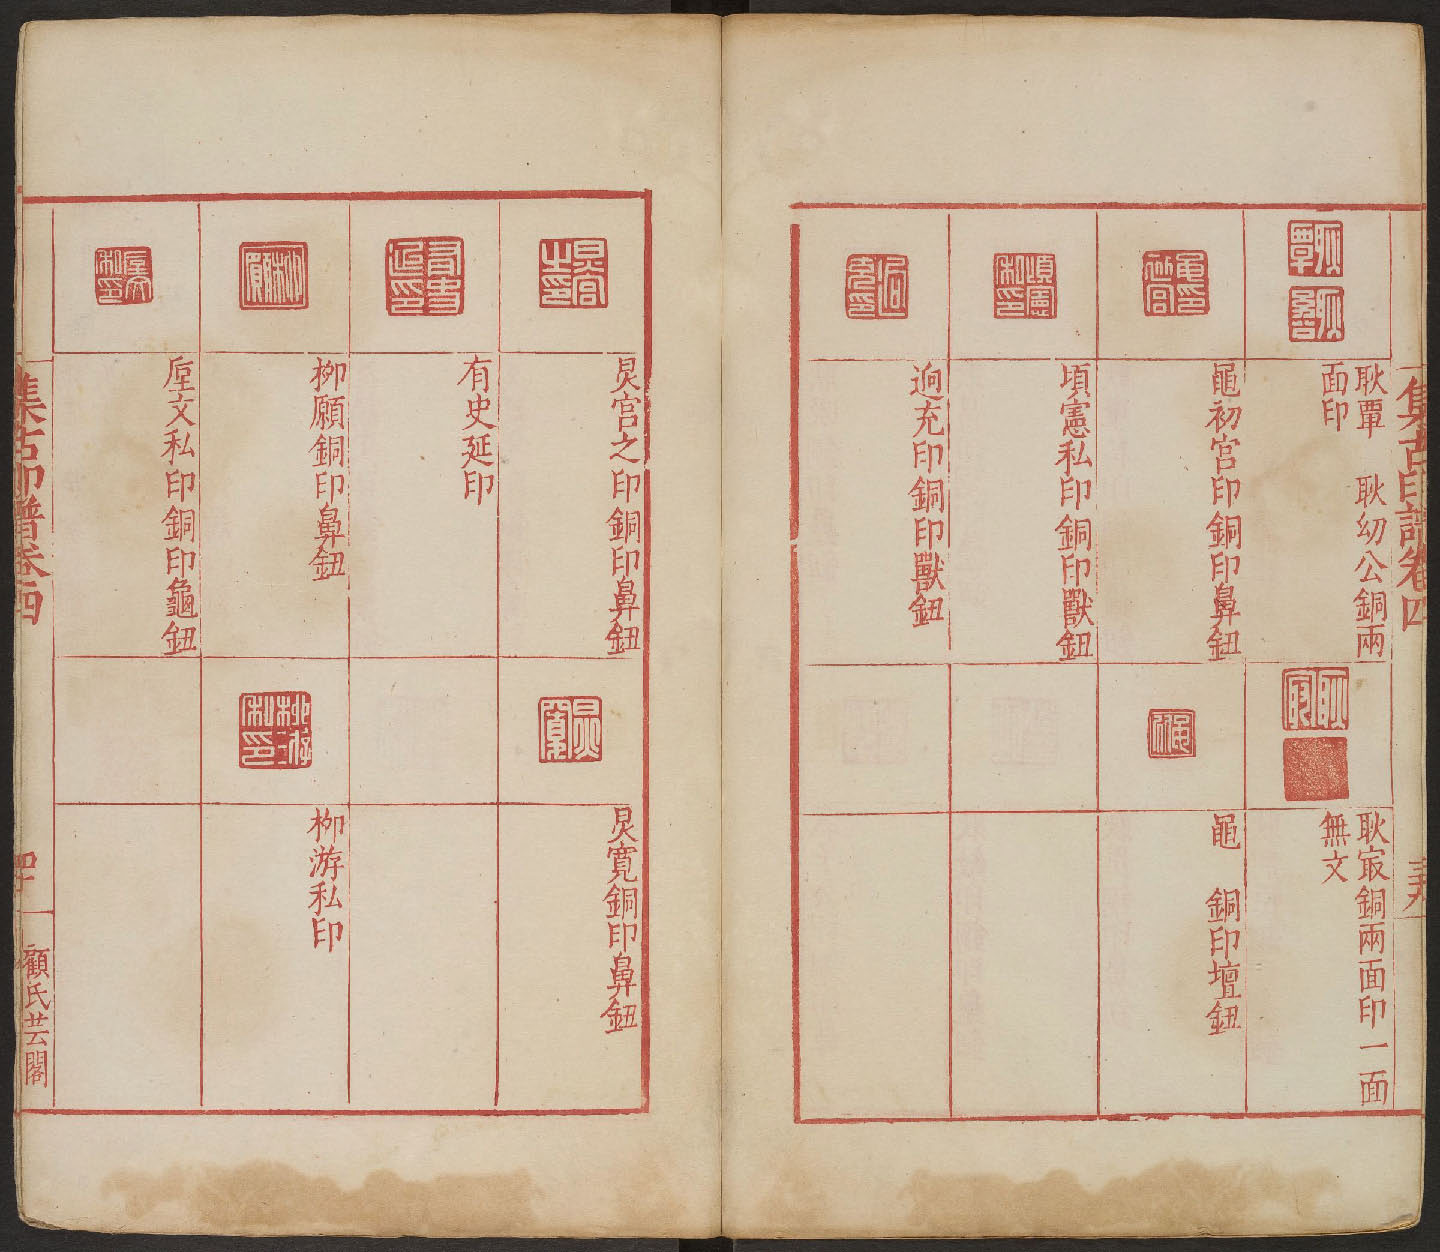 集古印譜卷四
耿覃　耿幼公銅兩
面印
耿冣銅兩面印一面
無文
黽初宫印銅印鼻鈕
黽　銅印壇鈕
頃憲私印銅印獸鈕
逈充印銅印獸鈕
炅宫之印銅印鼻鈕
炅寛銅印鼻鈕
有史延印
栁願銅印鼻鈕
栁游私印
垕文私印銅印龜鈕
集古印譜卷四
顧氏芸閣